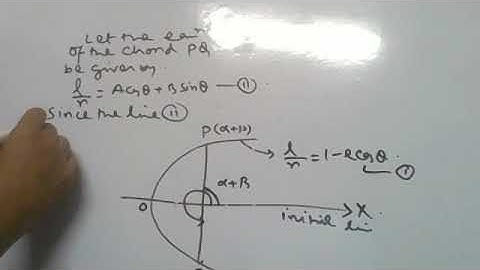 Let the eqn
of the chord PQ
be given by
l/r = A cosθ + B sinθ — (II)
Since the line (II)
P(α+β)
l/r = 1 - e cosθ.
(I)
α+β
O
X
initial line